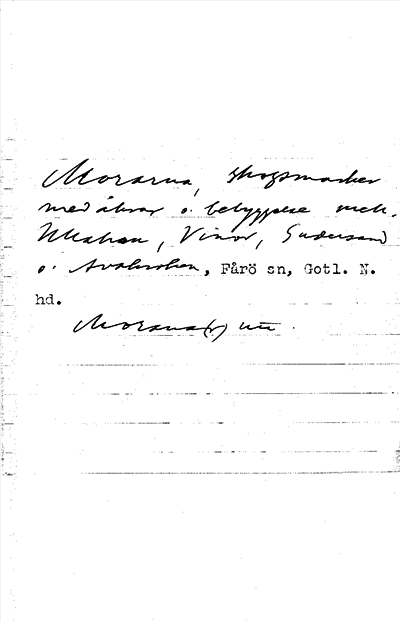 Morarna, skogsmarker
med åkrar o. bebyggelse mell.
Ullahau, Vinor, Sudersand
o. Avalunken, Fårö sn, Gotl. N.
hd.
Morana(r)